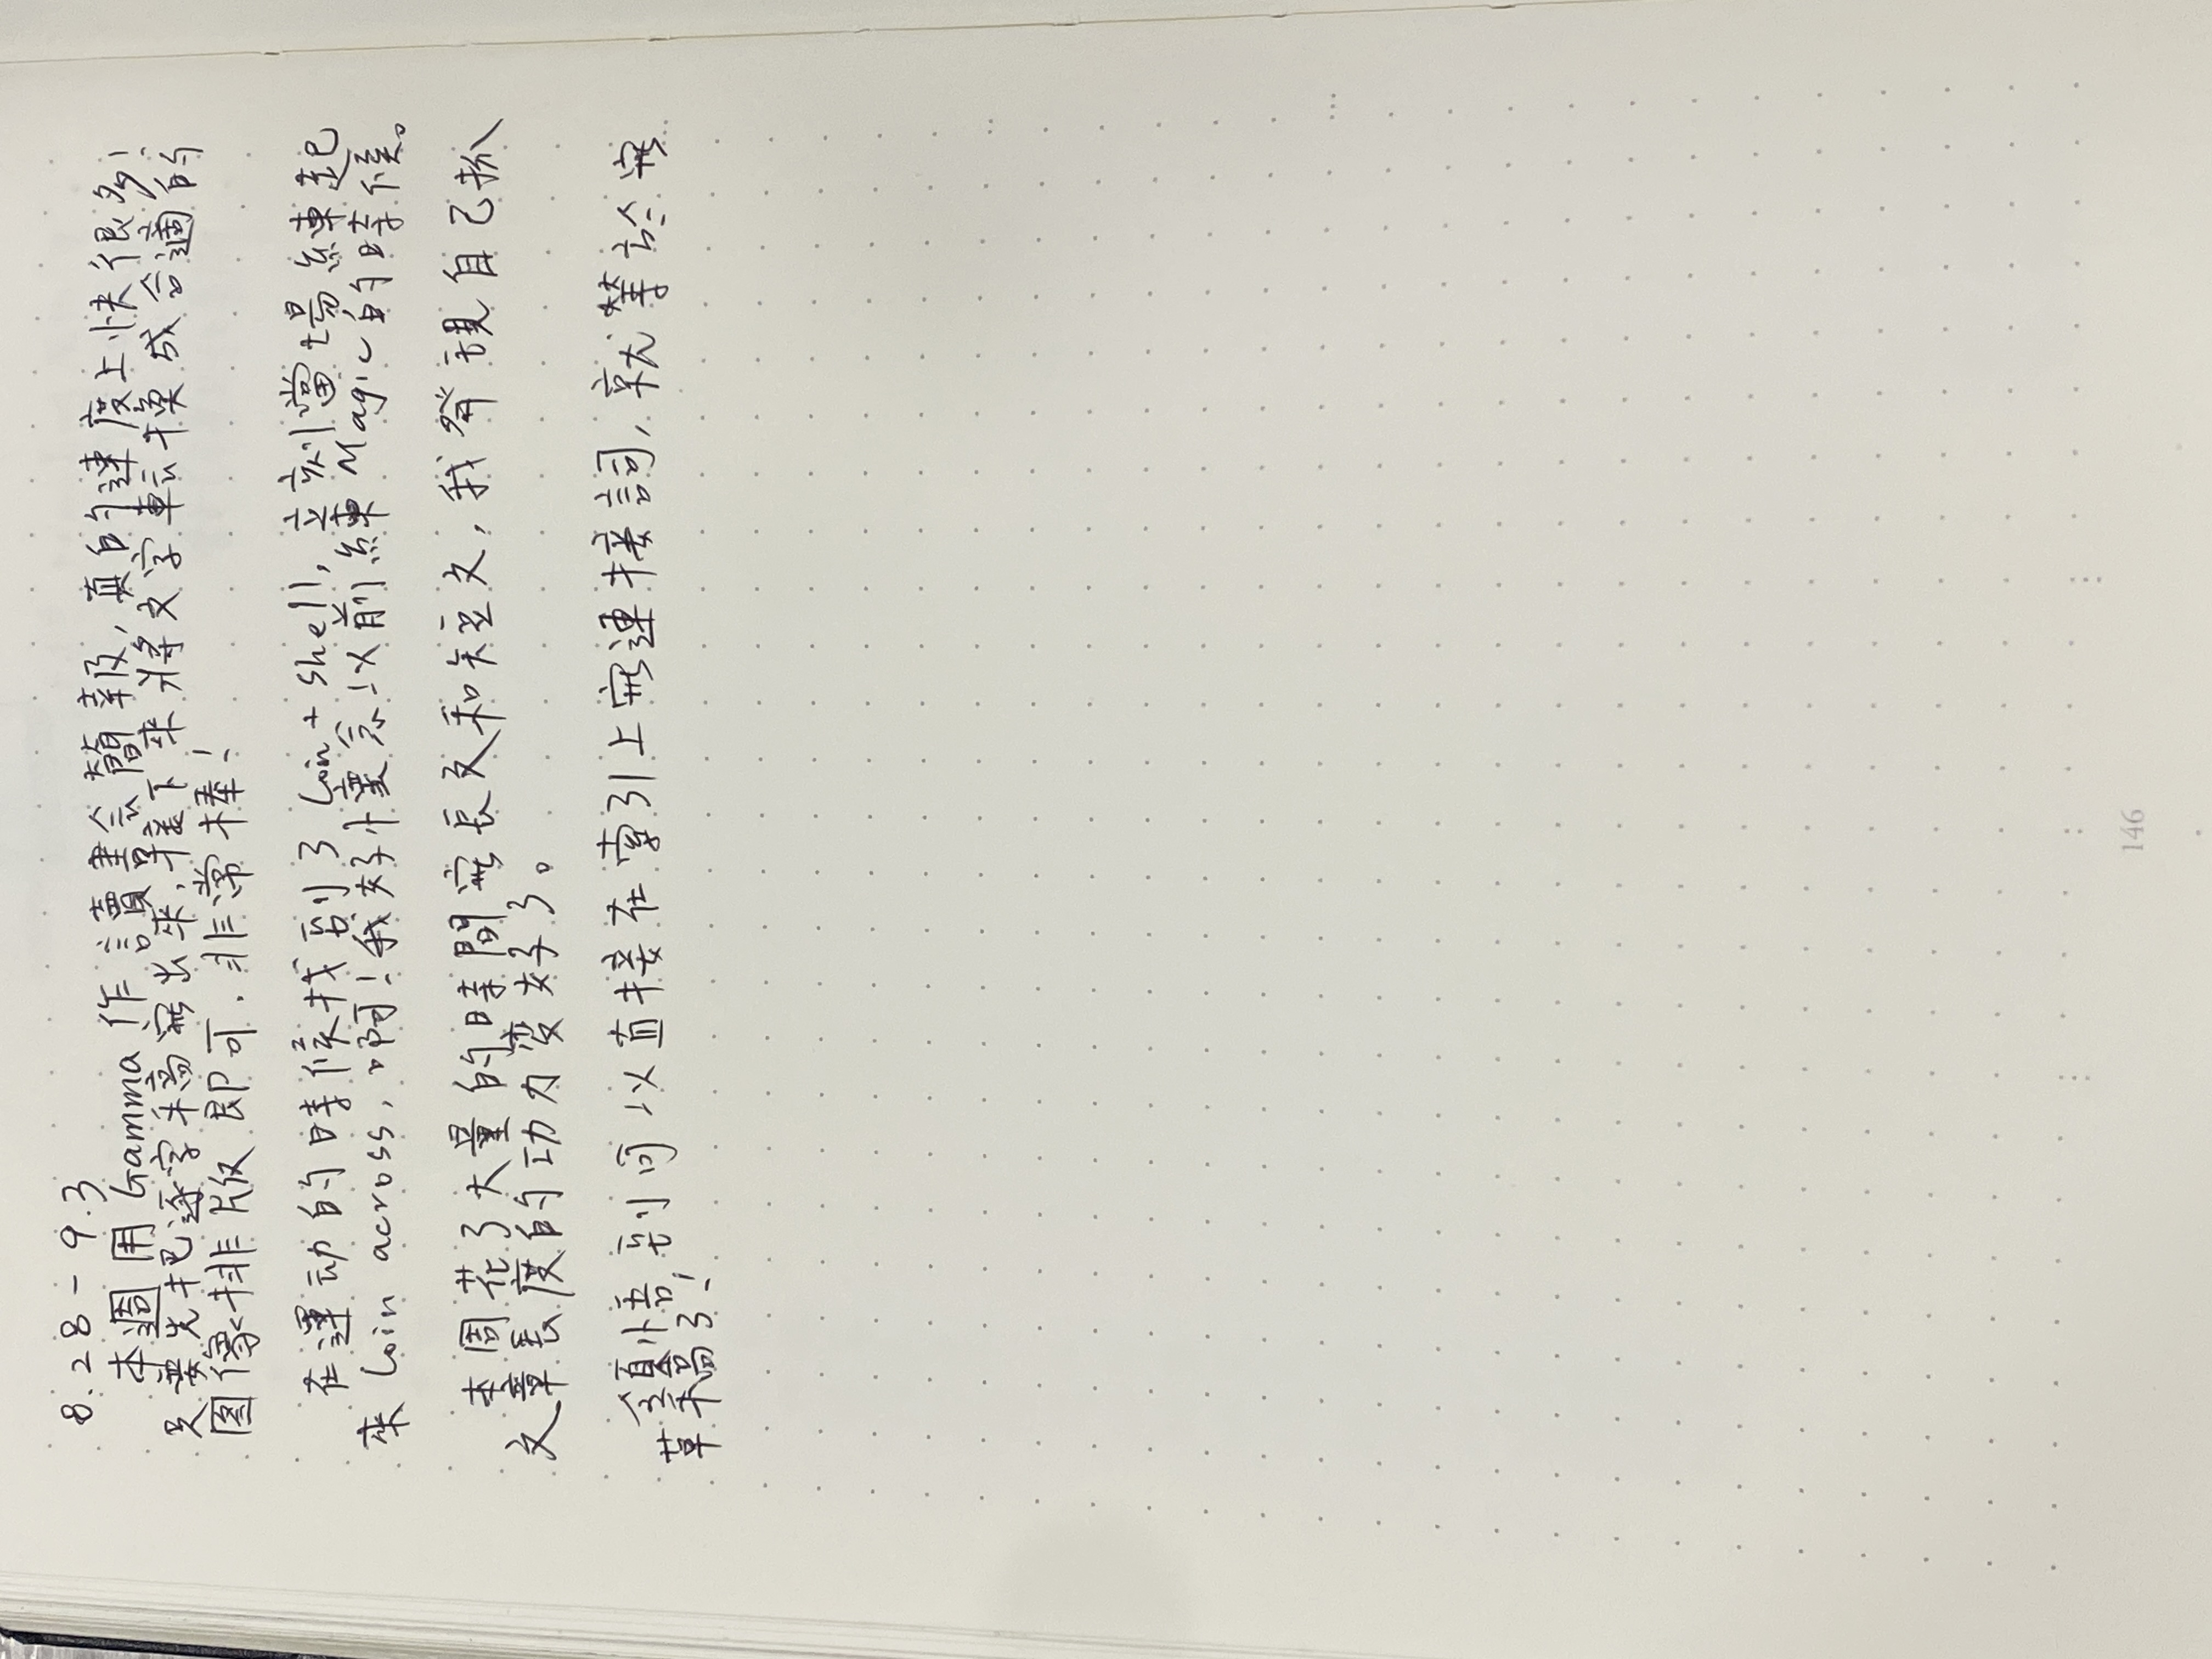 8.28 - 9.3
本週用 Gamma 作讀書会簡報,真的速度上快很多!
只要先把逐字稿寫出來,接下來將文字転換成合適的
图像排版即可,非常棒!
在運动的時候找到了 Coin + shell,立刻當場練起
來 Coin across,啊!我好懷念以前練 Magic 的時候。
本周花了大量的時間寫長文和短文,我発現自己抓
文章長度的功力変好了。
領悟到可以直接在索引上寫連接詞,就等於寫
草稿了!
146